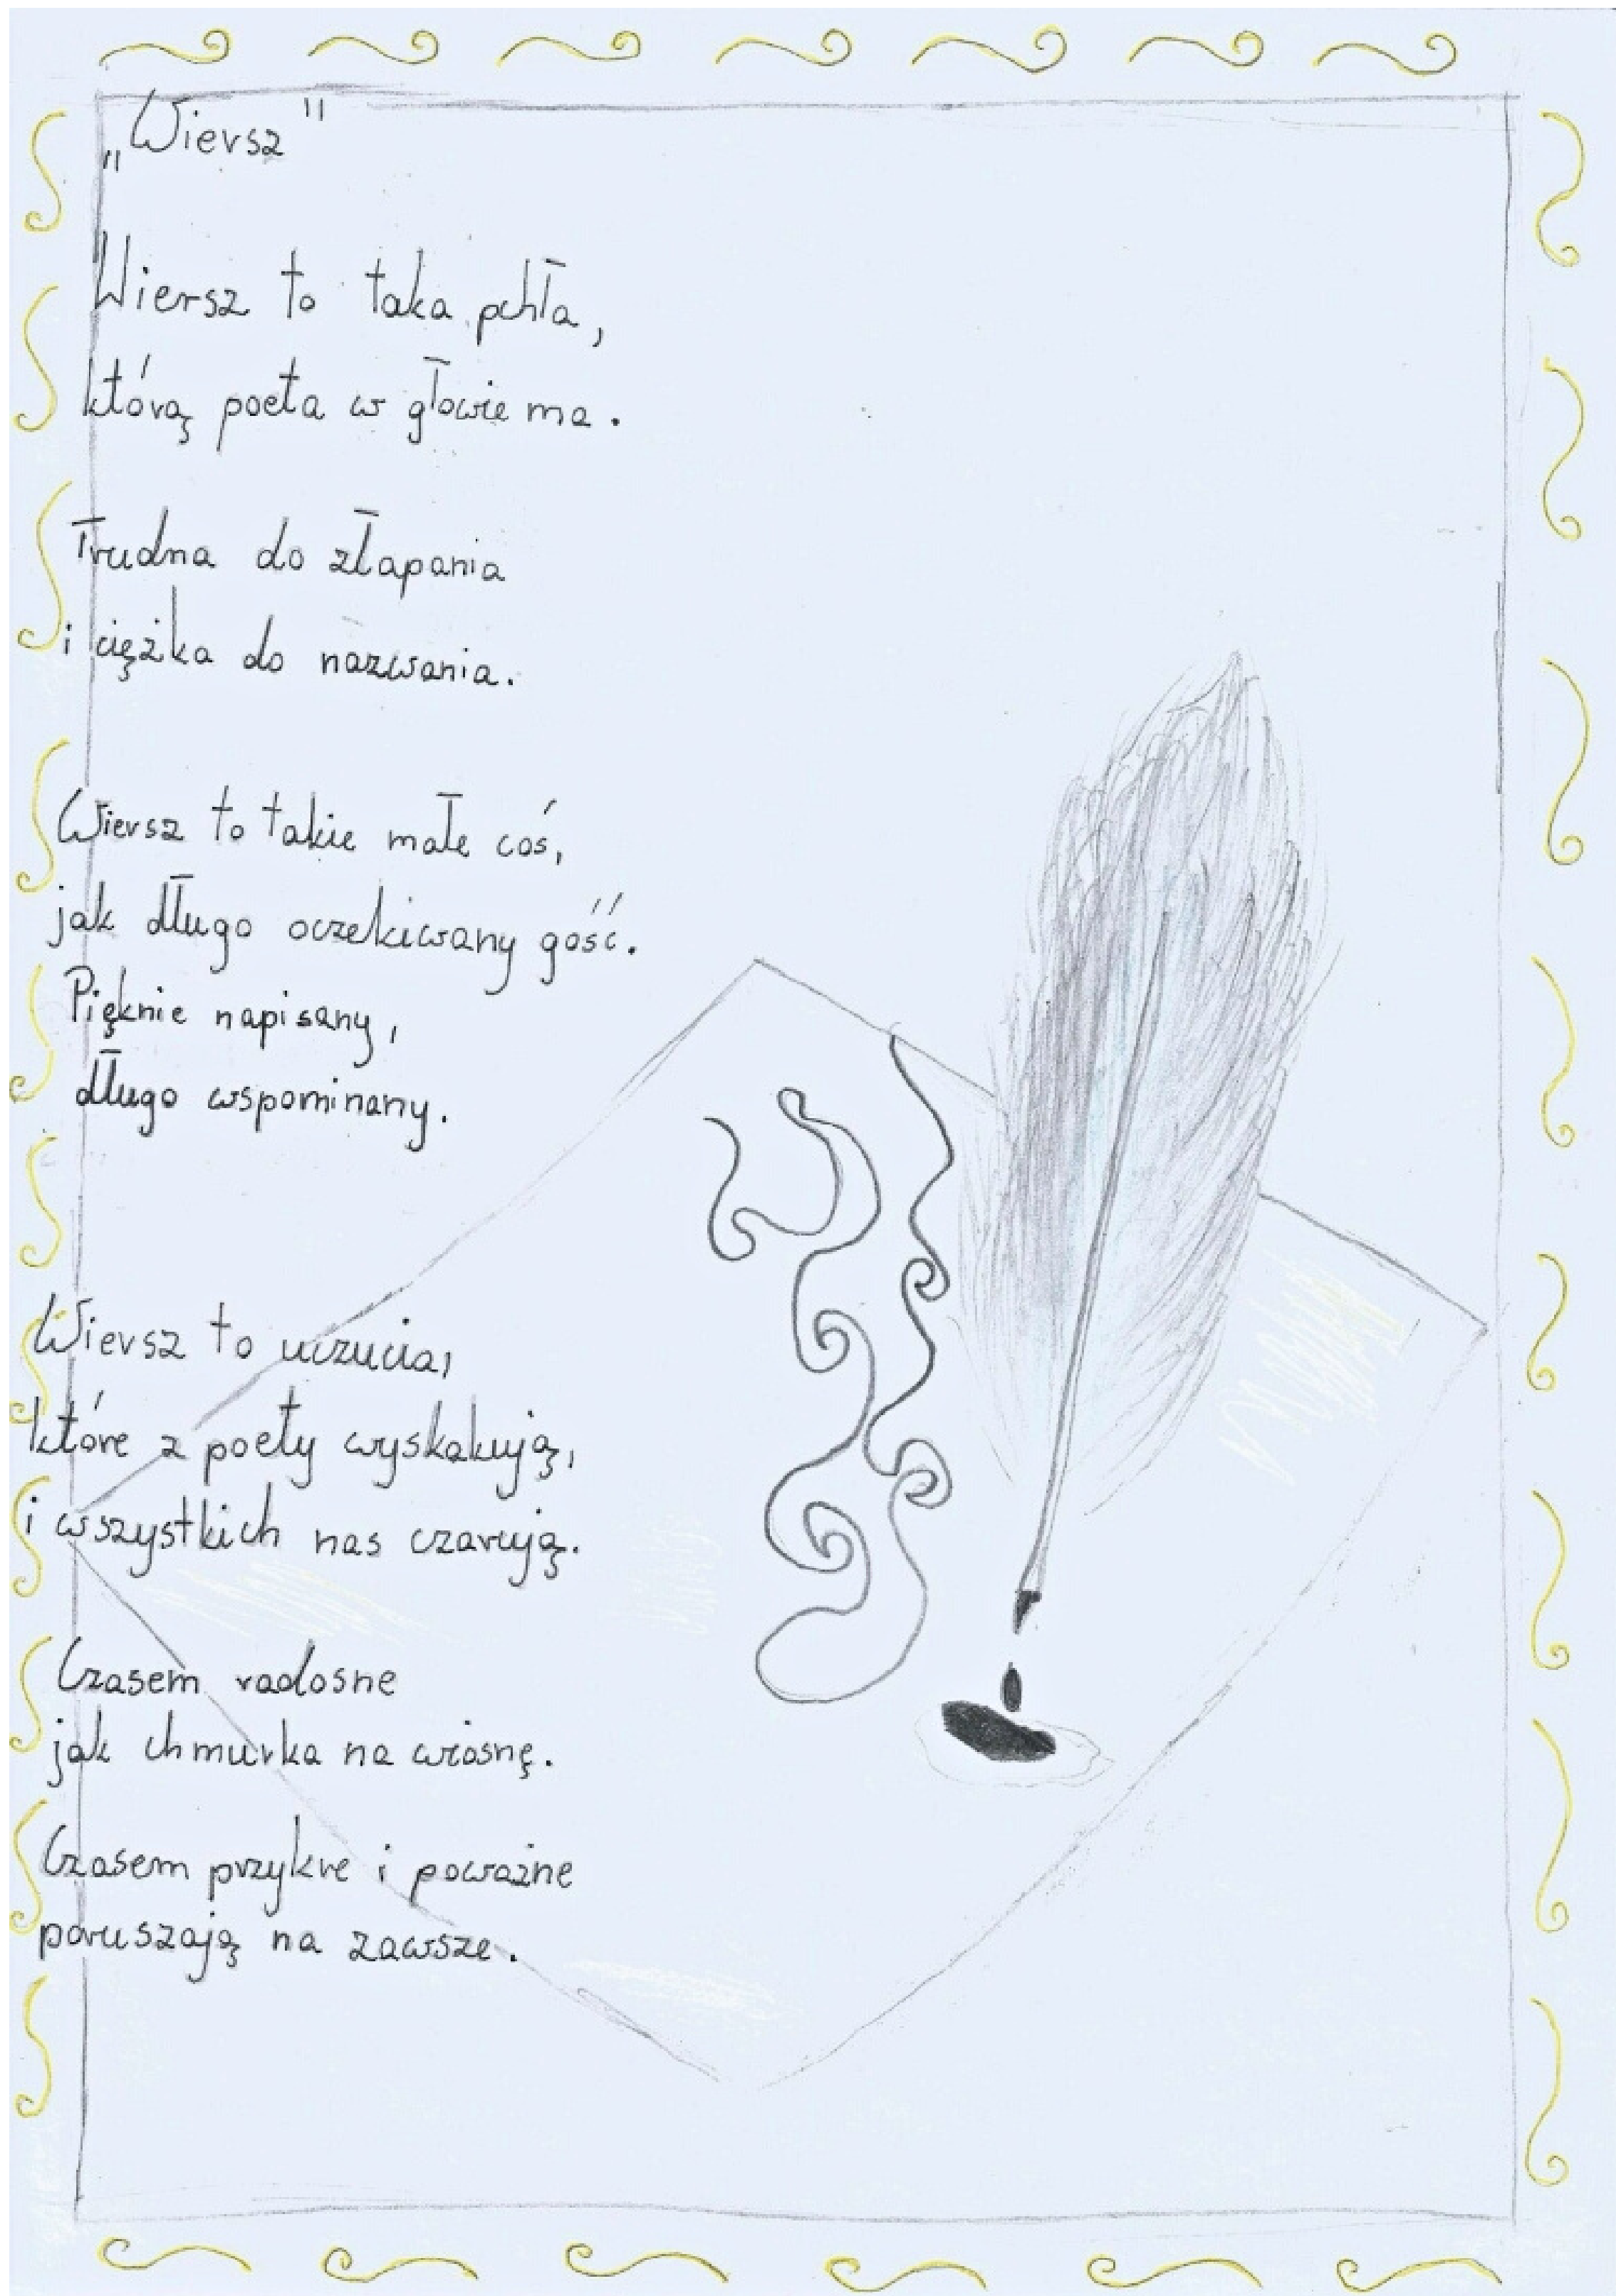 „Wiersz"
Wiersz to taka pchła,
którą poeta w głowie ma.
Trudna do złapania
i ciężka do nazwania.
Wiersz to takie małe coś,
jak długo oczekiwany gość.
Pięknie napisany,
długo wspominany.
Wiersz to uczucia,
które z poety wyskakują,
i wszystkich nas czarują.
Czasem radosne
jak chmurka na wiosnę.
Czasem przykre i poważne
poruszają na zawsze.